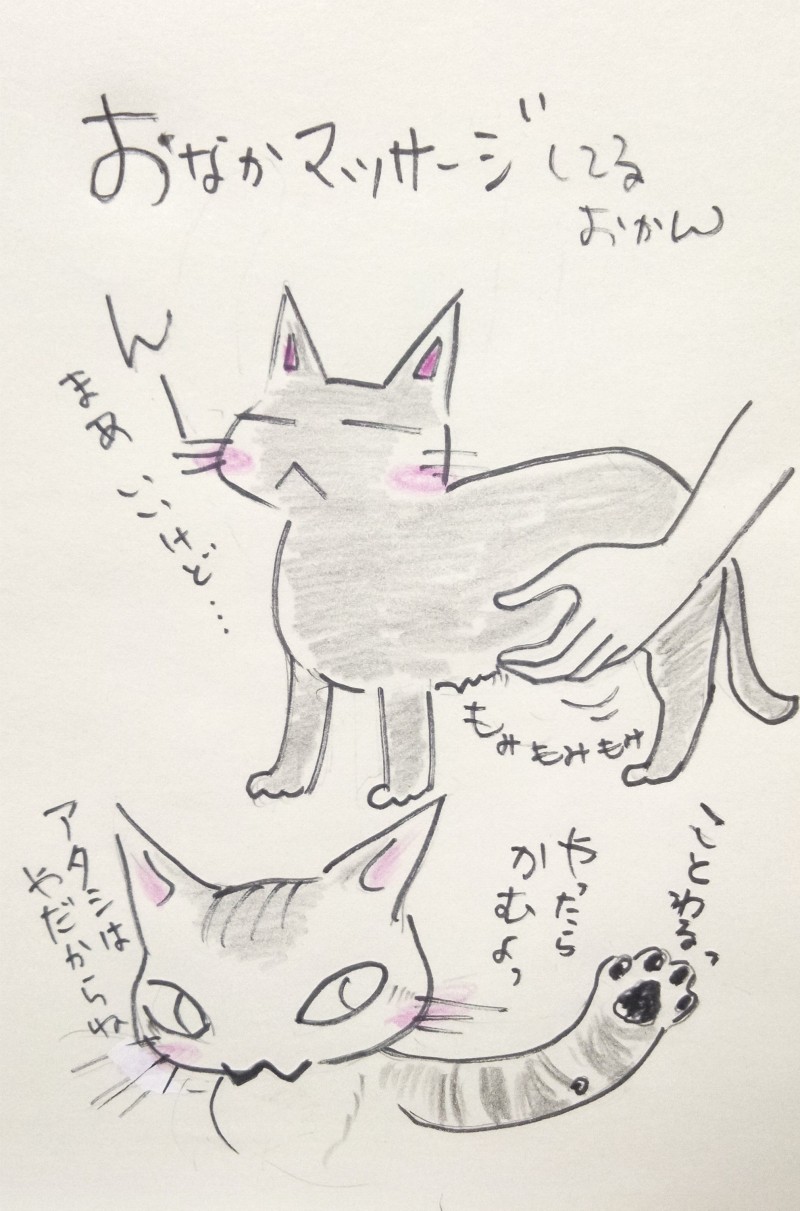 おなかマッサージしてる
おかん
ん
まあ いいけど…
もみもみもみ
アタシは
やだからね
ことわるっ
やったら
かむよっ